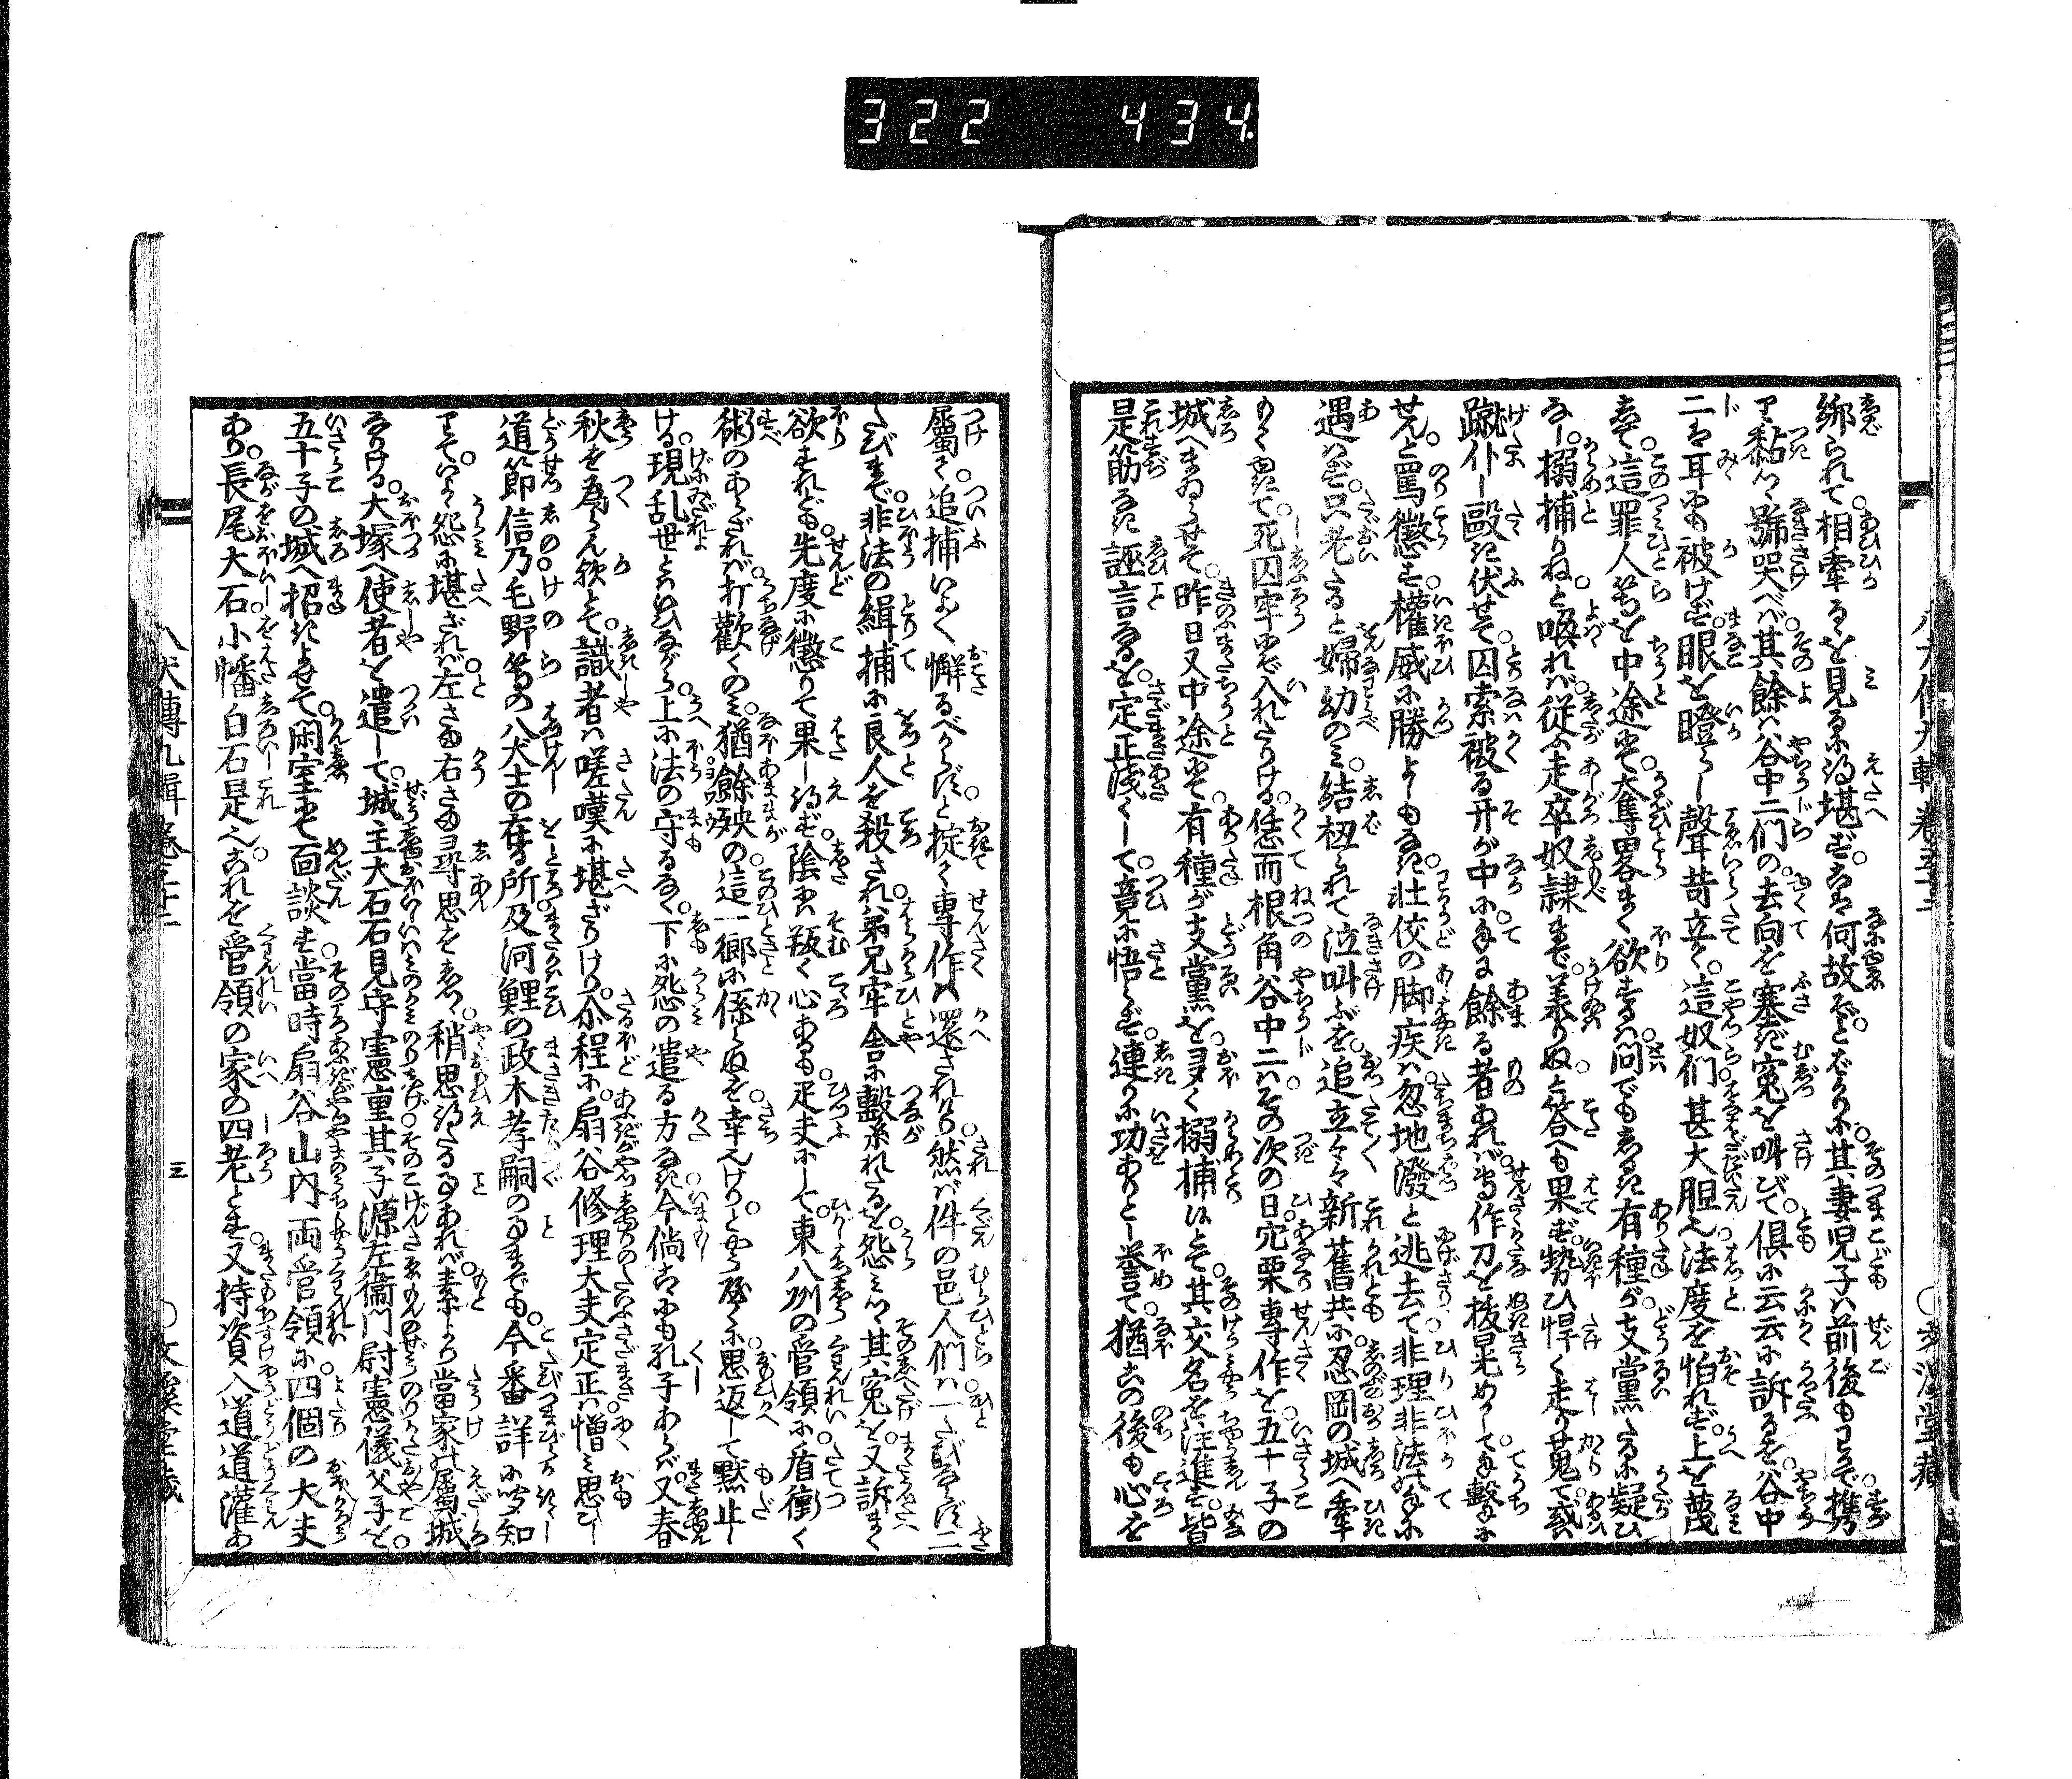 322 434
縛られて相牽るゝを見るに得堪ず。こは何故ぞとばかりに。其妻児子は前後もわかで携
りつ黏つゝ號哭べば。其餘は谷中二們の。去向を塞ぎ寃を叫びて。倶に云云に訴るを。谷中
二は耳にも被けず。眼を瞪らし聲苛立て。這奴們甚大胆也。法度を怕れず。上を蔑
して。這罪人等を中途にて。大奪畧まく欲するは。問でもしるき有種が支黨たるに疑ひ
なし。搦捕りねと喚れば。従ふ走卒奴隷まで。承りぬと答へも果ず。勢ひ悍く走り蒐て。或は
蹴仆し毆き伏せて。囚索被る。其が中にも手に餘る者あれば。専作刀を抜晃めかして手撃に
せん。と罵懲す。權威に勝よしもなき。壮佼の脚疾は。忽地潑と逃去て。非理非法の手に
遇はず。只老たると婦幼のみ。結扭られて泣叫ぶを。追立々々新舊共に。忍岡の城へ牽
もて來て。死囚牢にぞ入れたりける。恁而根角谷中二は。その次の日。穴栗専作を。五十子の
城へまゐらせて。昨日又中途にて。有種が支黨を。多く搦捕りぬとて。其交名を注進す。皆
是筋なき誣言なるを。定正淺くして竟に悟らず。連りに功ありとし譽て。猶この後も心を
屬て。追捕いよゝ懈るべからずと掟て。専作は還されけり。然ば件の邑人們は。一たびならず二
たびまで。非法の緝捕に良人を殺され。弟兄牢舎に繋れたるを。怨みつゝ其寃を。又訴まく
欲すれども。先度に懲りて果し得ず。陰には叛く心あるも。疋夫にして。東八州の管領に。盾衝く
術のあらざれば。打歎くのみ。猶餘殃の。這一郷に係らぬを。幸也けりとやうやくに。思返して黙止し
ける。現乱世とはいひながら。上に法の守るなく。下に怨の遣る方なき。今尚古にも孔子あらば。又春
秋を為らん歟とて。識者は嗟嘆に堪ざりけり。尒程に。扇谷修理大夫定正は。憎みと思ひし
道節信乃毛野等の。八犬士の在る所。及河鯉の政木孝嗣の事までも。今番詳に聞知
りて。いよゝ怨に堪ざれば。左さま右さま尋思をしつ。稍思得たる事あれば。素より當家の属城
なりける。大塚へ使者を遣して。城主大石石見守憲重。其子源左衞門尉憲儀父子を。
五十子の城へ招きよせて。閑室にて面談す。當時扇谷山内。両管領に。四個の大夫
あり。長尾大石小幡白石是也。これを管領の家の四老とす。又持資入道道灌あ
八犬傳九輯 巻三十二
三
文溪堂藏